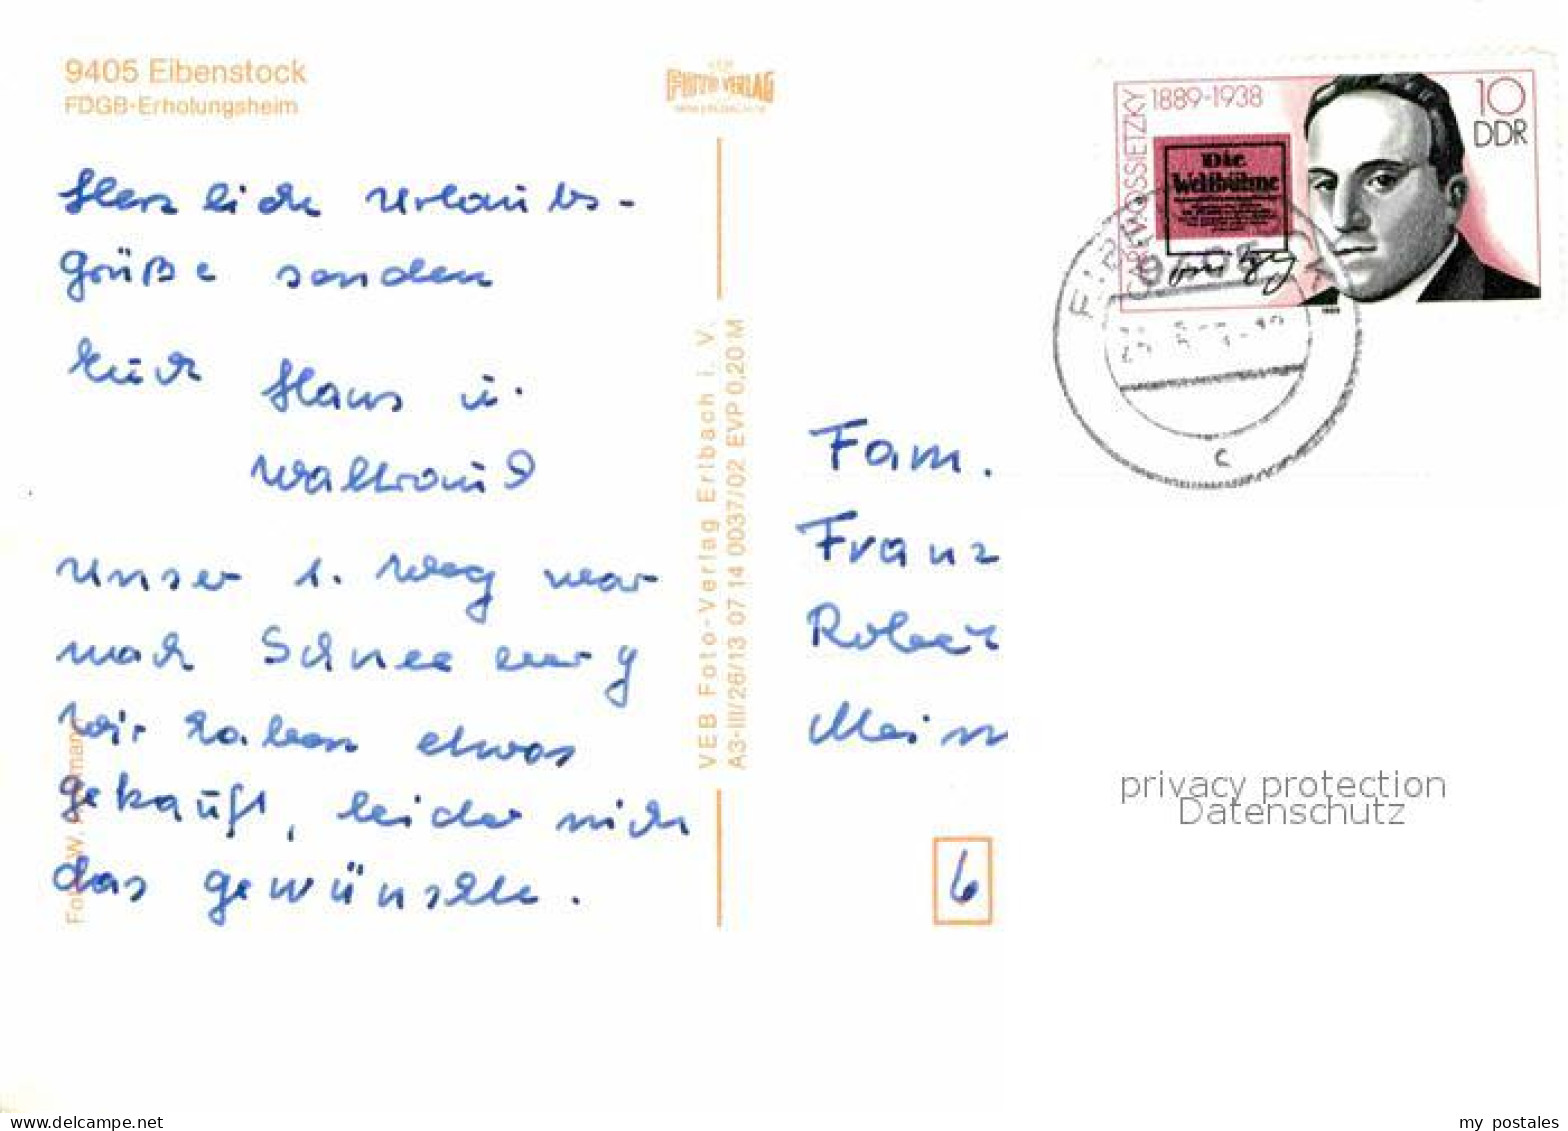 9405 Eibenstock
FDGB-Erholungsheim
FOTO VERLAG
Herzliche Urlaubs-
grüße senden
Euch Hans u.
Waltraud
Unser 1. Weg war
nach Schneeberg
Wir haben etwas
gekauft, leider nicht
das gewünschte.
VEB Foto-Verlag Erlbach i. V.
A3-III/26/13 07 14 0037/02 EVP 0,20 M
CARL V. OSSIETZKY
1889-1938
10
DDR
Die
Weltbühne
c
Fam.
Franz
Robert
6
privacy protection
Datenschutz
my postales